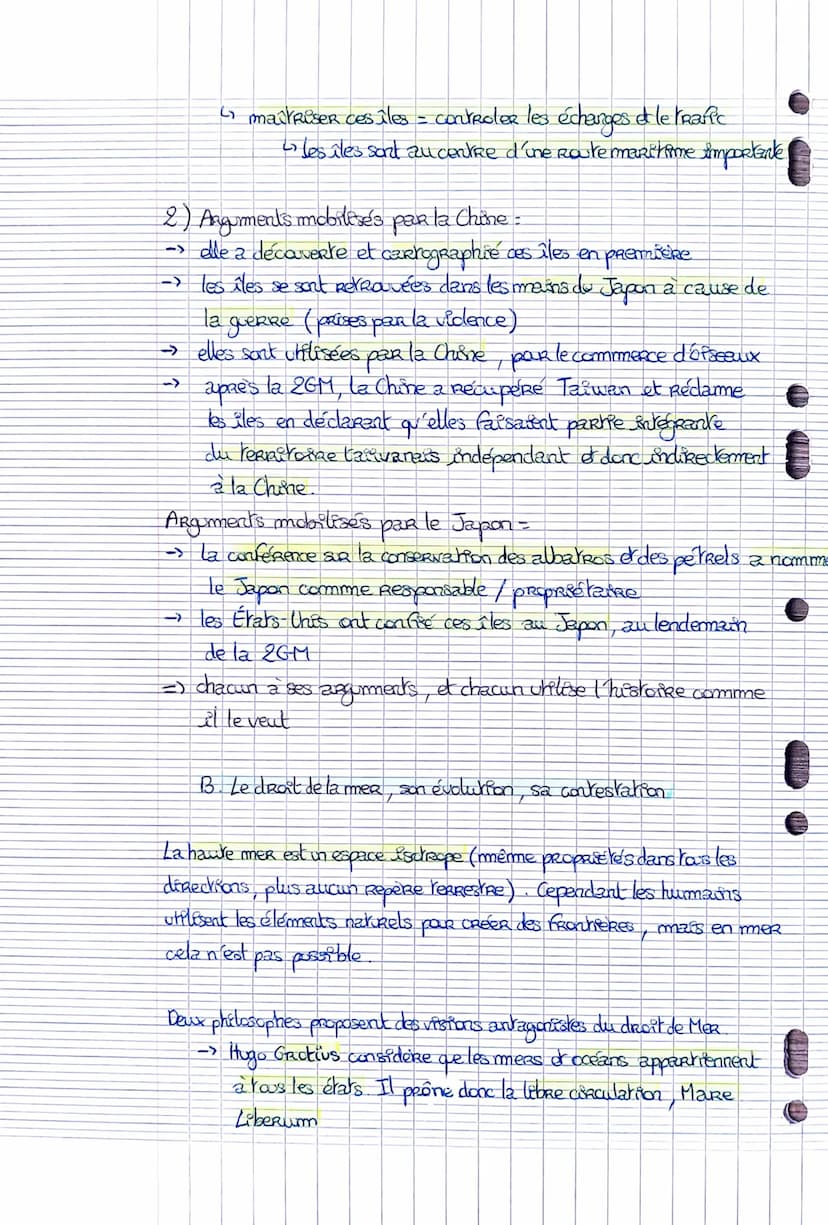 ↳ maîtriser ces îles = controler les échanges et le trafic
↳ les îles sont au centre d'une route maritime importante
2) Arguments mobilisés par la Chine :
→ elle a découverte et cartographié ces îles en première
→ les îles se sont retrouvées dans les mains du Japon à cause de
la guerre (prises par la violence)
→ elles sont utilisées par la Chine, pour le commerce d'oiseaux
→ après la 2GM, la Chine a récupéré Taïwan et réclame
les îles en déclarant qu'elles faisaient partie intégrante
du territoire taïwanais indépendant et donc indirectement
à la Chine.
Arguments mobilisés par le Japon =
→ la conférence sur la conservation des albatros et des pétrels a nommé
le Japon comme responsable / propriétaire
→ les États-Unis ont confié ces îles au Japon, au lendemain
de la 2GM
=> chacun à ses arguments, et chacun utilise l'histoire comme
il le veut
B. Le droit de la mer, son évolution, sa contestation.
La haute mer est un espace isotrope (même propriétés dans tous les
directions, plus aucun repère terrestre). Cependant les humains
utilisent les éléments naturels pour créer des frontières, mais en mer
cela n'est pas possible.
Deux philosophes proposent des visions antagonistes du droit de Mer.
→ Hugo Grotius considère que les mers et océans appartiennent
à tous les états. Il prône donc la libre circulation, Mare
Liberum